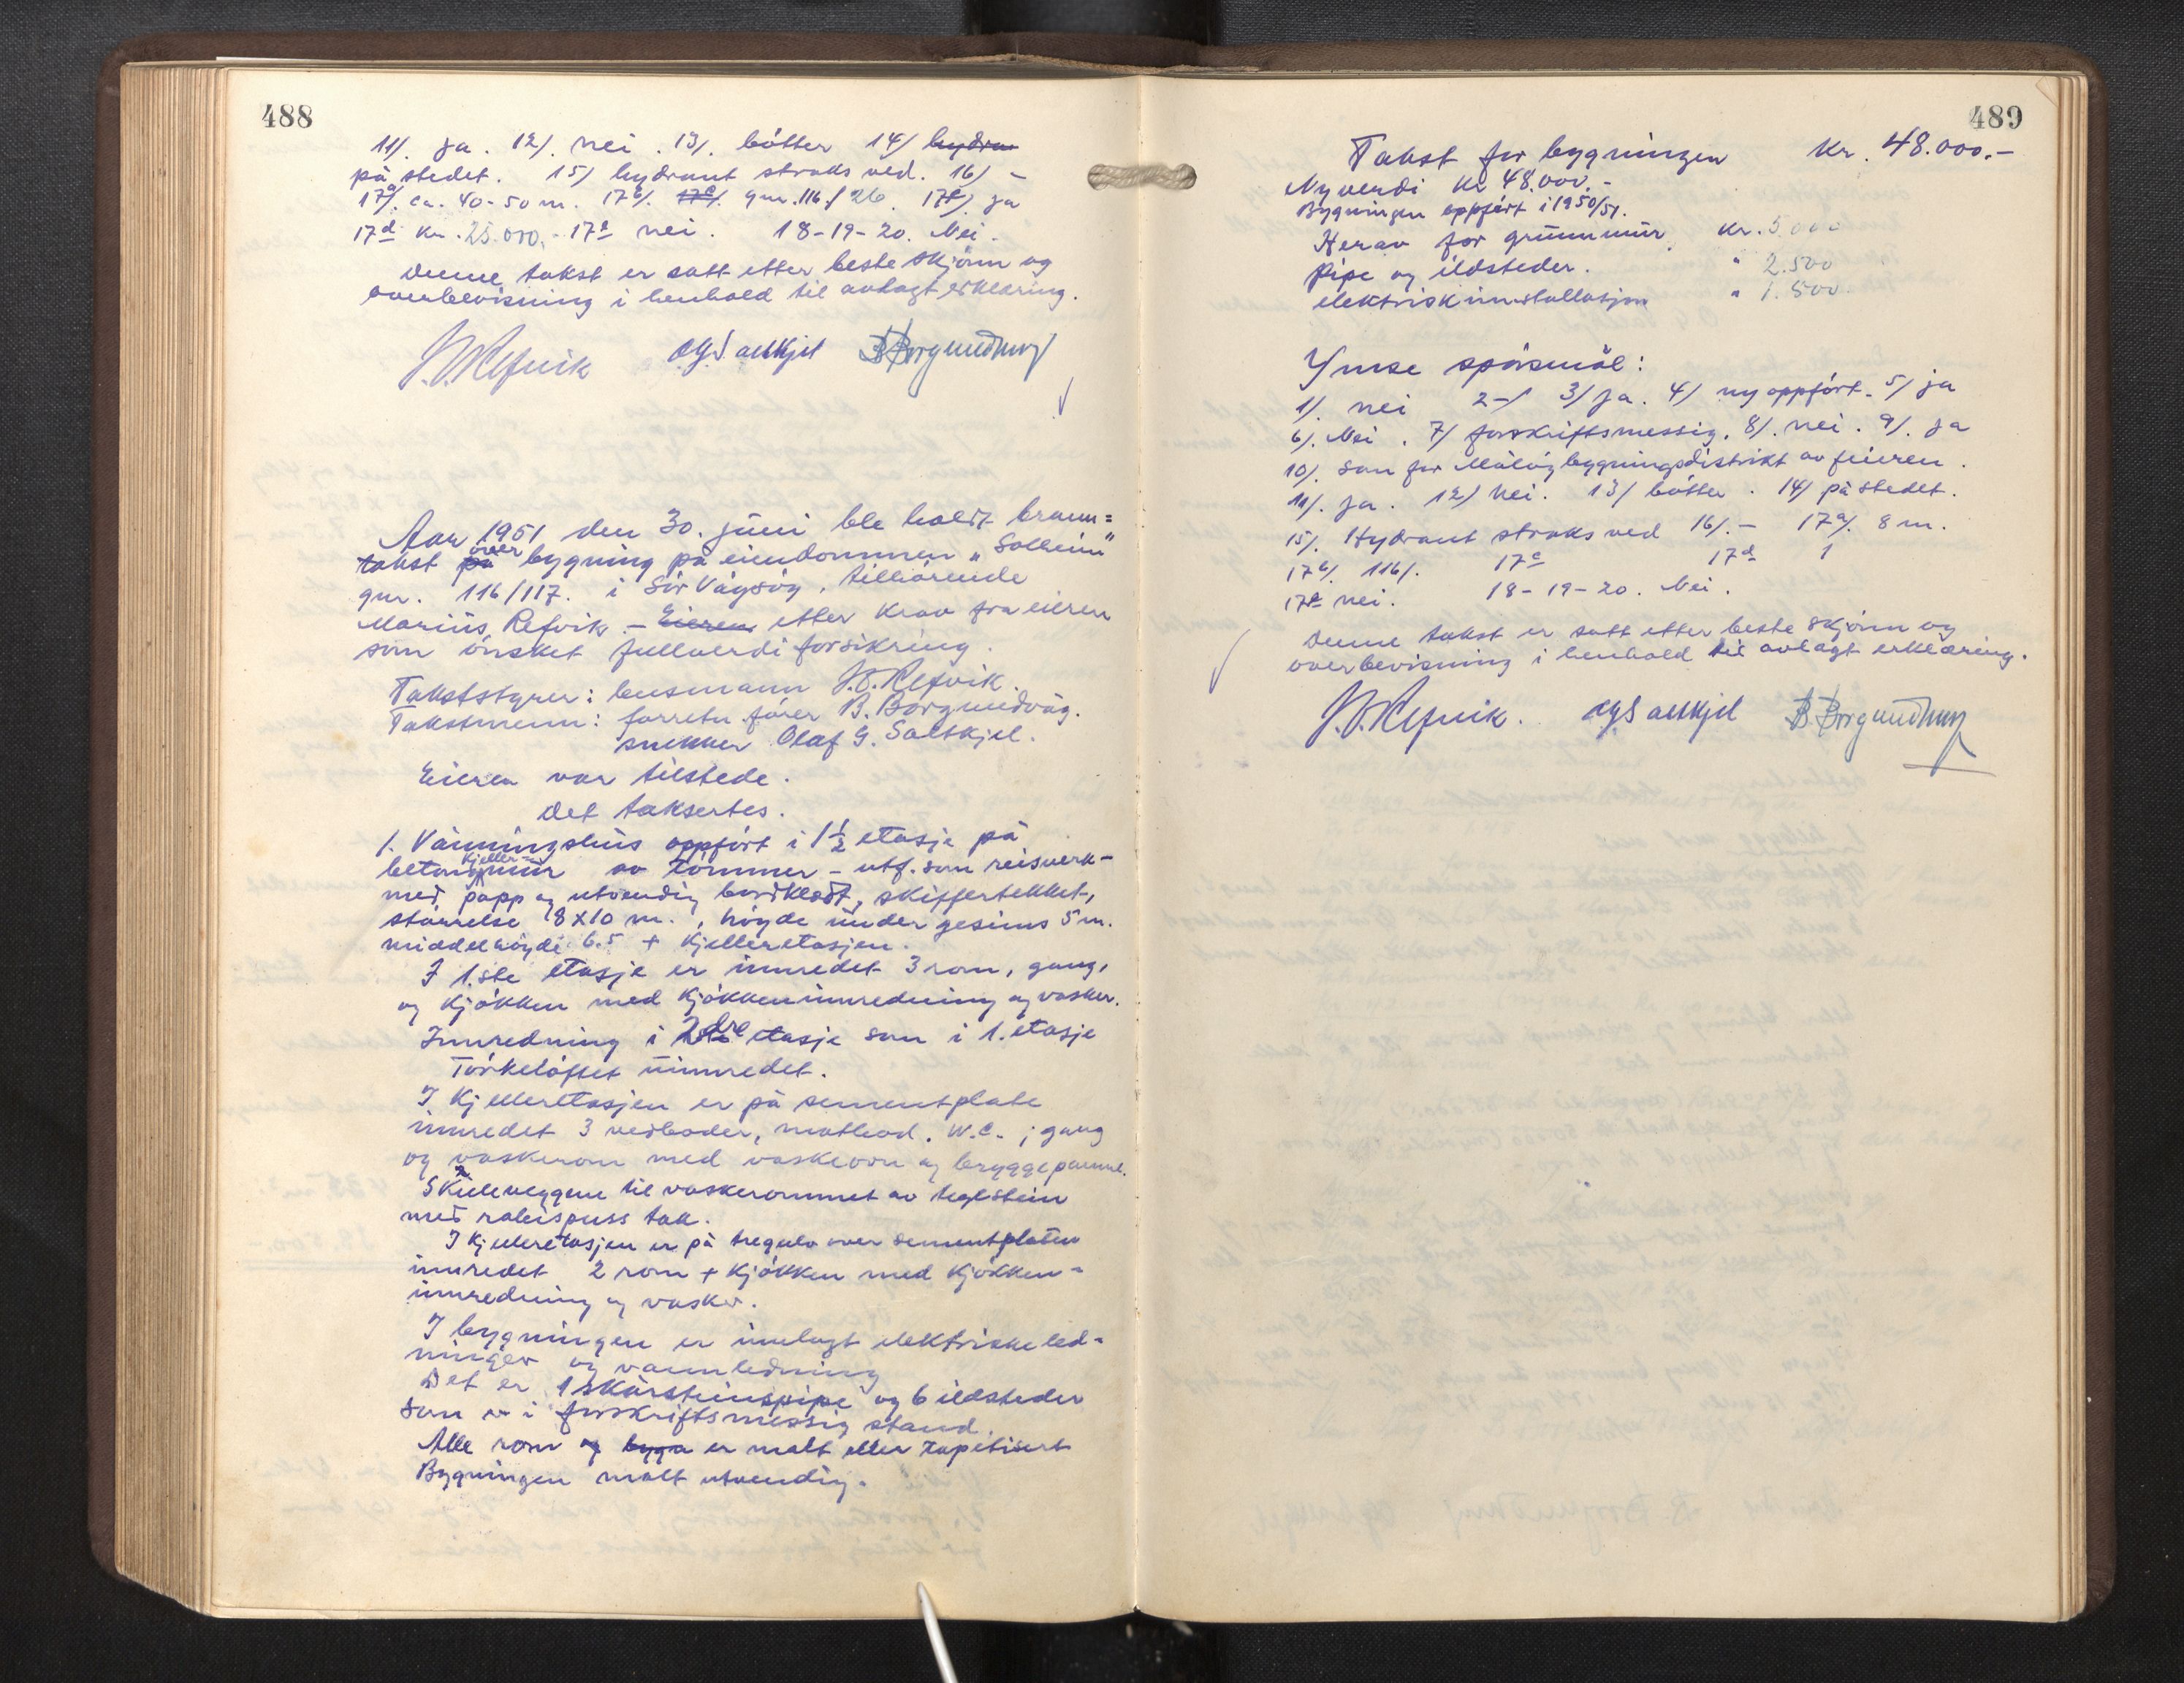 488
11/. ja. 12/. nei. 13/. bøtter 14/ hydra
på stedet. 15/ hydrant straks ved. 16/ -
17a/. ca. 40-50 m. 17b/. 17c/. gnr. 116/26. 17c/. ja
17d kr. 25.000,- 17e nei. 18-19-20. Nei.
Denne takst er satt etter beste skjønn og
overbevisning i henhold til avlagt erklæring.
J. O. Refvik O G Saltkjel B Borgundvåg
Aar 1951 den 30. juni ble holdt brann=
takst på over bygning på eiendommen "Solheim"
gnr. 116/117. i Sør Vågsøy, tilhørende
Marius Refvik. - Eieren etter krav fra eieren
som ønsket fullverdiforsikring.
Takststyrer: lensmann J. O. Refvik.
Takstmenn: forretn. fører B. Borgundvåg.
snekker Olaf G. Saltkjel.
Eieren var tilstede.
Det taksertes.
1. Våningshus oppført i 1½ etasje på
betong kjeller- mur av tømmer - utf. som reisverk -
med papp og utvendig bordkledt, skiffertekket,
størrelse 8 x 10 m., høyde under gesims 5 m.
middelhøyde 6.5 + kjelleretasjen.
I 1.ste etasje er innredet 3 rom, gang,
og kjøkken med kjøkkeninnredning og vasker.
Innredning i 2dre etasje som i 1. etasje
Tørkeloftet uinnredet.
I kjelleretasjen er på sementplate
innredet 3 vedboder, matbod. W.C. ; gang
og vaskerom med vaskeovn og bryggepanne.
Skilleveggene til vaskerommet av teglstein
med rabispuss tak.
I kjelleretasjen er på tregulv over sementplaten
innredet 2 rom + kjøkken med kjøkken=
innredning og vasker.
I bygningen er innlagt elektriske led=
ninger og vannledning
Det er 1 skorsteinspipe og 6 ildsteder
som er i forskriftsmessig stand.
Alle rom og bygn er malt eller tapetisert
Bygningen malt utvendig.
489
Takst for bygningen kr. 48.000.-
Nyverdi kr 48.000.-
Bygningen oppført i 1950/51.
Herav for grunnmur kr. 5.000
pipe og ildsteder. " 2.500
elektrisk innstallasjon " 1.500
Ymse spørsmål:
1/. nei 2-/ 3/ ja. 4/ ny oppført. 5/ ja
6/. Nei. 7/ forskriftsmessig. 8/. nei. 9/. ja
10/. som for Måløy bygningsdistrikt av feieren.
11/. ja. 12/ Nei. 13/ bøtter. 14/ på stedet.
15/. Hydrant straks ved 16/. - 17a/. 8 m.
17b/. 116/. 17c 17d 1
17e nei. 18-19-20. Nei.
Denne takst er satt etter beste skjønn og
overbevisning i henhold til avlagt erklæring.
J. O. Refvik. O G Saltkjel B. Borgundvåg